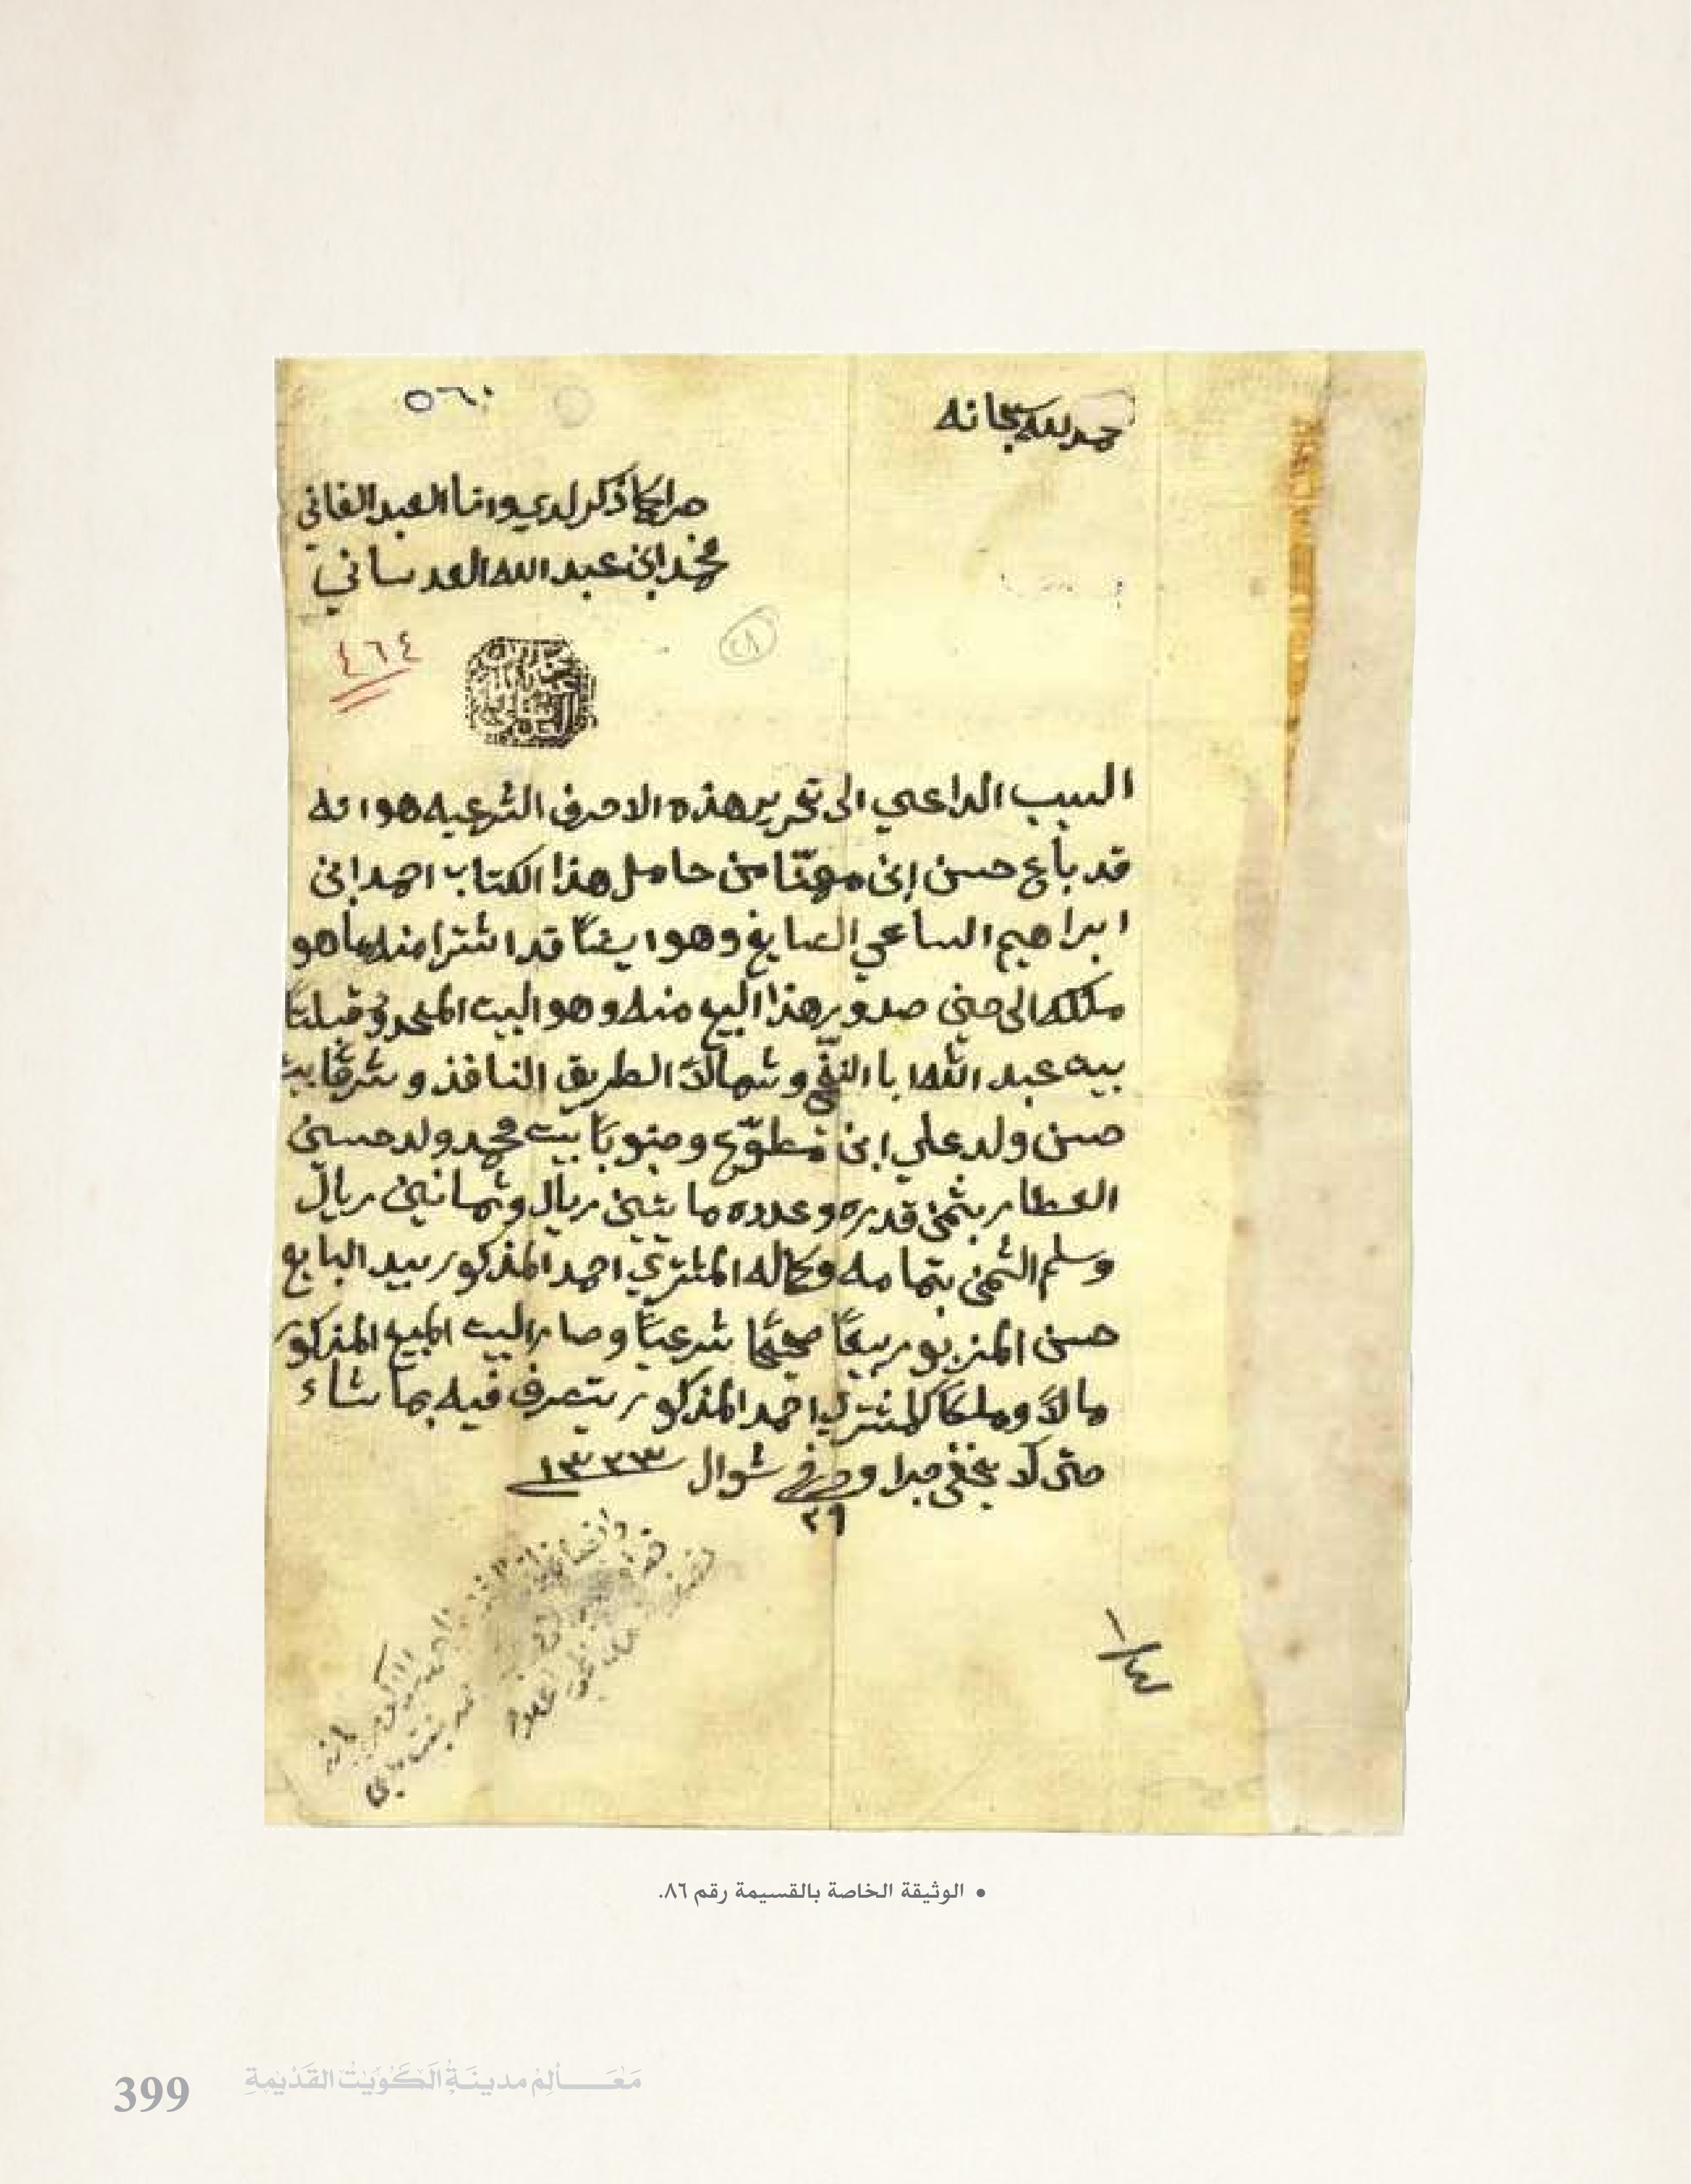 ٥٦٠
حمد لله سبحانه
جرا كما ذكر لدي وانا العبد الفاني
محمد ابن عبد الله العدساني
٤٦٤
٢٨
السبب الداعي الى تحرير هذه الاحرف الشرعيه هو انه
قد باع حسن ابن مهنّا من حامل هذا الكتاب احمد ابن
ابراهيم الساعي الصايغ وهو ايضاً قد اشترا منه ما هو
ملكه الى حين صدور هذا البيع منه وهو البيت المحدود قبلتاً
بيت عبد الله ابا النقّي وشمالاً الطريق النافذ وشرقاً بيت
حسن ولد علي ابن مطوّع وجنوباً بيت محمد ولد حسين
العطار بثمن قدره وعدده مايتين ريال وثمانين ريال
وسلم الثمن بتمامه وكماله المشتري احمد المذكور بيد البايع
حسن المزبور بيعاً صحيحًا شرعياً وصار البيت المبيع المذكور
مالاً وملكاً للمشتري احمد المذكور يتصرف فيه بما شاء
حتى لا يخفى جرا وحرر في شوال ١٣٣٣
٢٩
• الوثيقة الخاصة بالقسيمة رقم ٨٦.
مَعَالِمْ مدينَةِ الكُوَيْتْ القَدْيمةِ
399